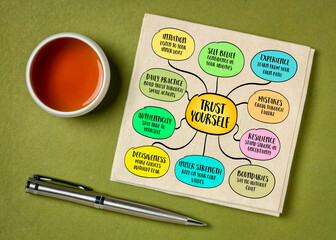 INTUITION
LISTEN TO YOUR
INNER VOICE
SELF BELIEF
CONFIDENCE IN
YOUR ABILITIES
EXPERIENCE
LEARN FROM YOUR
OWN PATH
DAILY PRACTICE
BUILD TRUST THROUGH
SMALL ACTIONS
MISTAKES
GROW THROUGH
FAILURE
TRUST
YOURSELF
AUTHENTICITY
STAY TRUE TO
YOURSELF
RESILIENCE
STAND STRONG IN
UNCERTAINTY
DECISIVENESS
MAKE CHOICES
WITHOUT FEAR
INNER STRENGTH
RELY ON YOUR CORE
VALUES
BOUNDARIES
SAY NO WITHOUT
GUILT